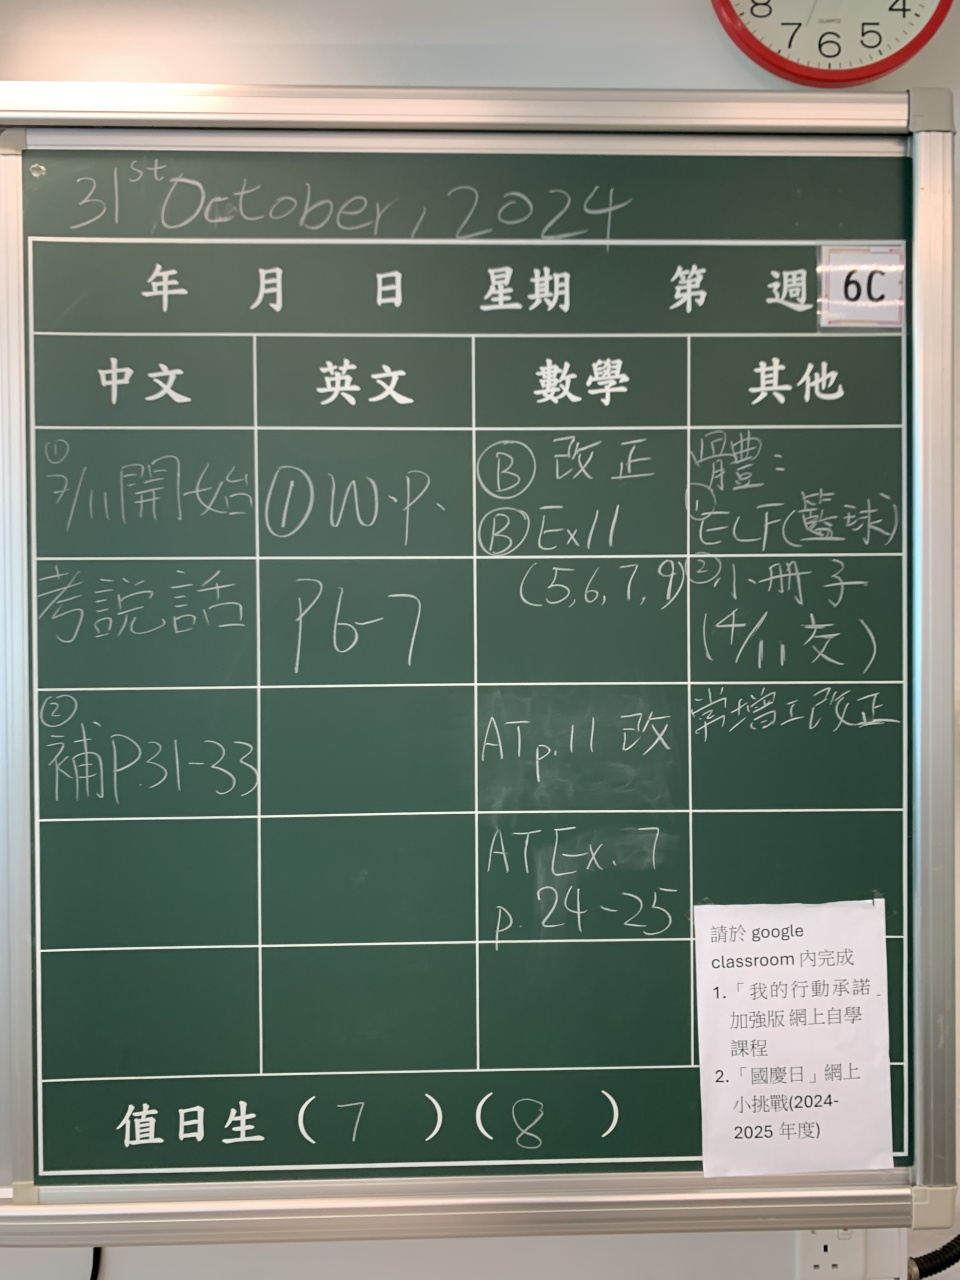 8 7 6 5 4
QUARTZ
31st October, 2024
年 月 日 星期 第 週 6C
中文 英文 數學 其他
①
7/11開始
考說話
②
補P.31-33
① W.P.
P6-7
Ⓑ 改正
Ⓑ Ex11
(5,6,7,9)
AT p.11 改
AT Ex. 7
p. 24-25
體:
① ELF(籃球)
② 小冊子
(4/11 交)
常增工改正
請於 google
classroom 內完成
1.「我的行動承諾
加強版 網上自學
課程
2.「國慶日」網上
小挑戰(2024-
2025 年度)
值日生 (7) (8)